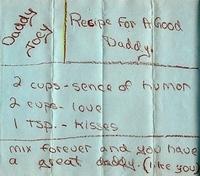 Daddy
Joey
Recipe For A Good
Daddy.
2 cups - sence of humor
2 cups - love
1 Tsp. - Kisses
mix forever and you have
a great daddy. (like you)